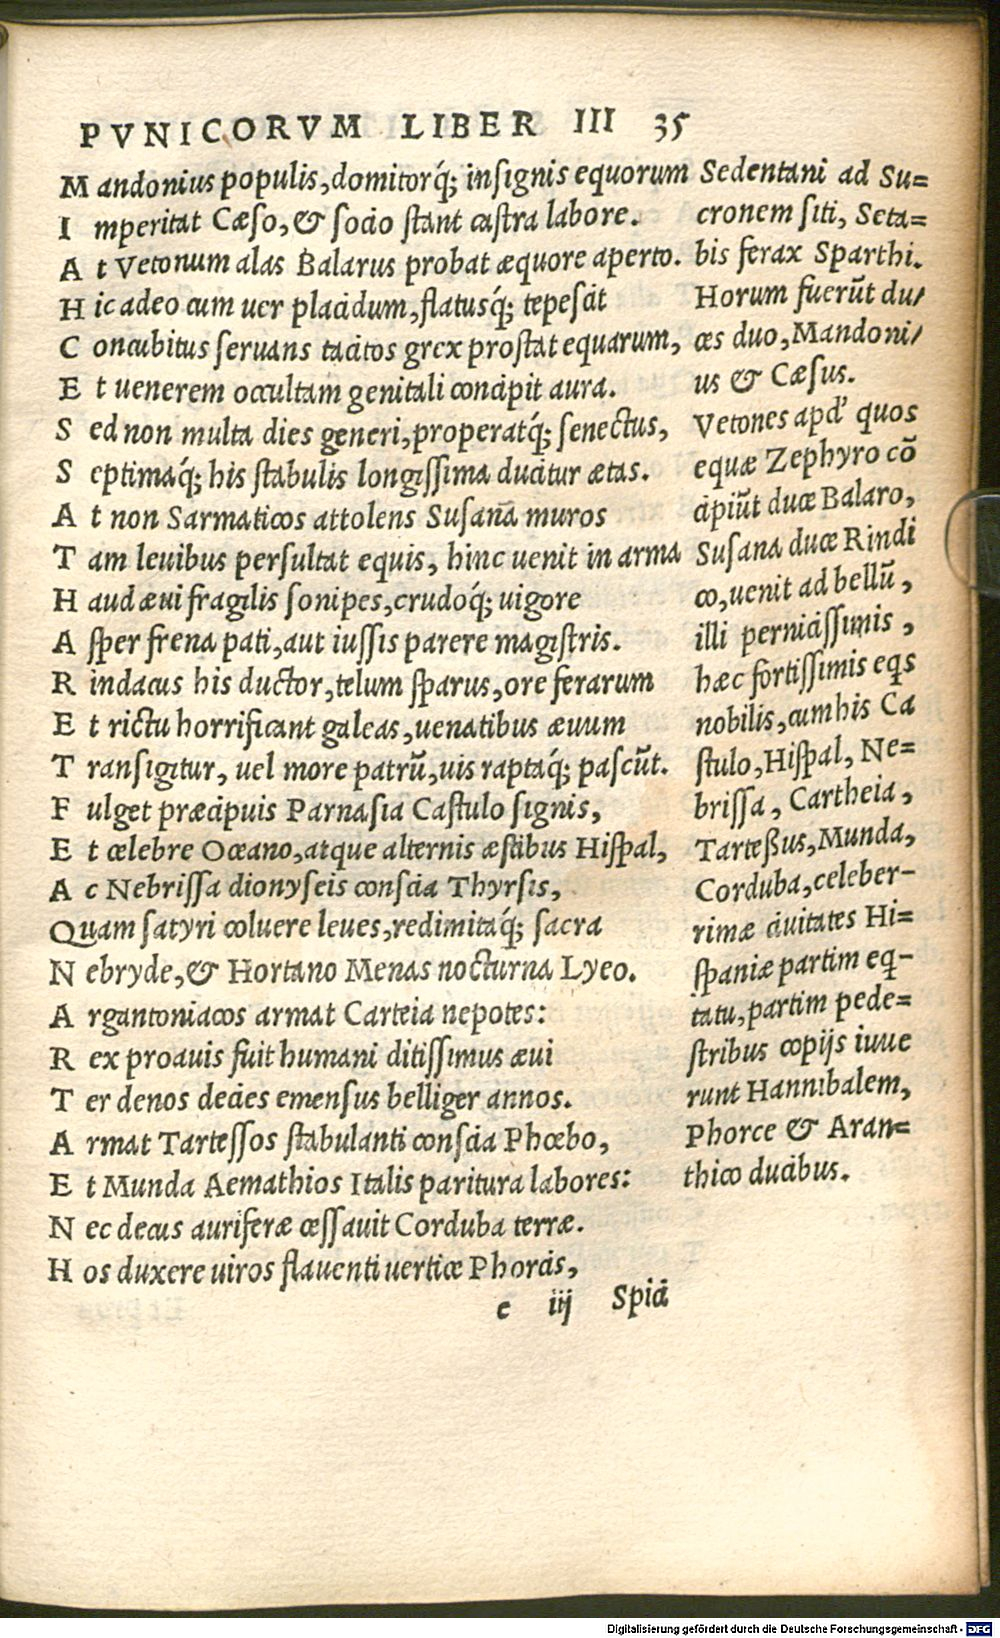 PVNICORVM LIBER III 35
Mandonius populis, domitorq́; insignis equorum
Imperitat Cæso, & socio stant castra labore.
At Vetonum alas Balarus probat æquore aperto.
Hic adeo cum uer placidum, flatusq́; tepescit
Concubitus seruans tacitos grex prostat equarum,
Et uenerem occultam genitali concipit aura.
Sed non multa dies generi, properatq́; senectus,
Septimaq́; his stabulis longissima ducitur ætas.
At non Sarmaticos attolens Susanā muros
Tam leuibus persultat equis, hinc uenit in arma
Haud æui fragilis sonipes, crudoq́; uigore
Asper frena pati, aut iussis parere magistris.
Rindacus his ductor, telum sparus, ore ferarum
Et rictu horrificant galeas, uenatibus æuum
Transigitur, uel more patrū, uis raptaq́; pascūt.
Fulget præcipuis Parnasia Castulo signis,
Et celebre Oceano, atque alternis æstibus Hispal,
Ac Nebrissa dionyseis conscia Thyrsis,
Quam satyri coluere leues, redimitaq́; sacra
Nebryde, & Hortano Menas nocturna Lyeo.
Argantoniacos armat Carteia nepotes:
Rex proauis fuit humani ditissimus æui
Ter denos decies emensus belliger annos.
Armat Tartessos stabulanti conscia Phœbo,
Et Munda Aemathios Italis paritura labores:
Nec decus auriferæ cessauit Corduba terræ.
Hos duxere uiros flauenti uertice Phorcis,
e iij Spici
Sedentani ad Su=
cronem siti, Seta=
bis ferax Sparthi.
Horum fuerūt du/
ces duo, Mandoni/
us & Cæsus.
Vetones apd' quos
equæ Zephyro cō
cipiūt duce Balaro,
Susana duce Rindi
co, uenit ad bellū,
illi perniciſſimis,
hæc fortissimis eqs
nobilis, cum his Ca
stulo, Hispal, Ne=
brissa, Cartheia,
Tarteßus, Munda,
Corduba, celeber-
rimæ ciuitates Hi=
spaniæ partim eq-
tatu, partim pede=
stribus copijs iuue
runt Hannibalem,
Phorce & Aran=
thico ducibus.
Digitalisierung gefördert durch die Deutsche Forschungsgemeinschaft - DFG